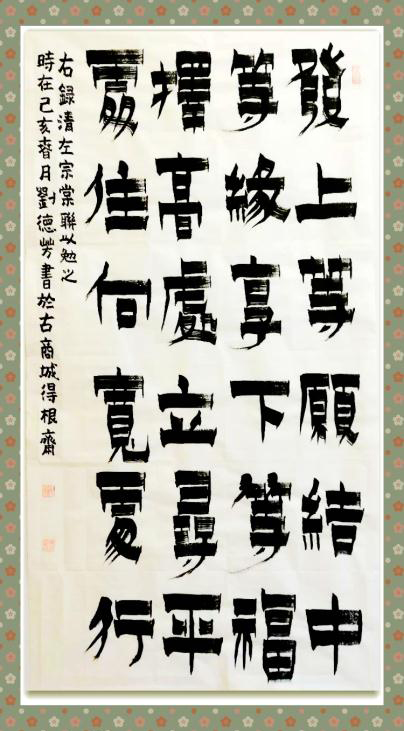 發上等願結中
等緣享下等福
擇高處立尋平
處住向寬處行
右錄清左宗棠聯以勉之
時在己亥春月劉德芳書於古商城得根齋